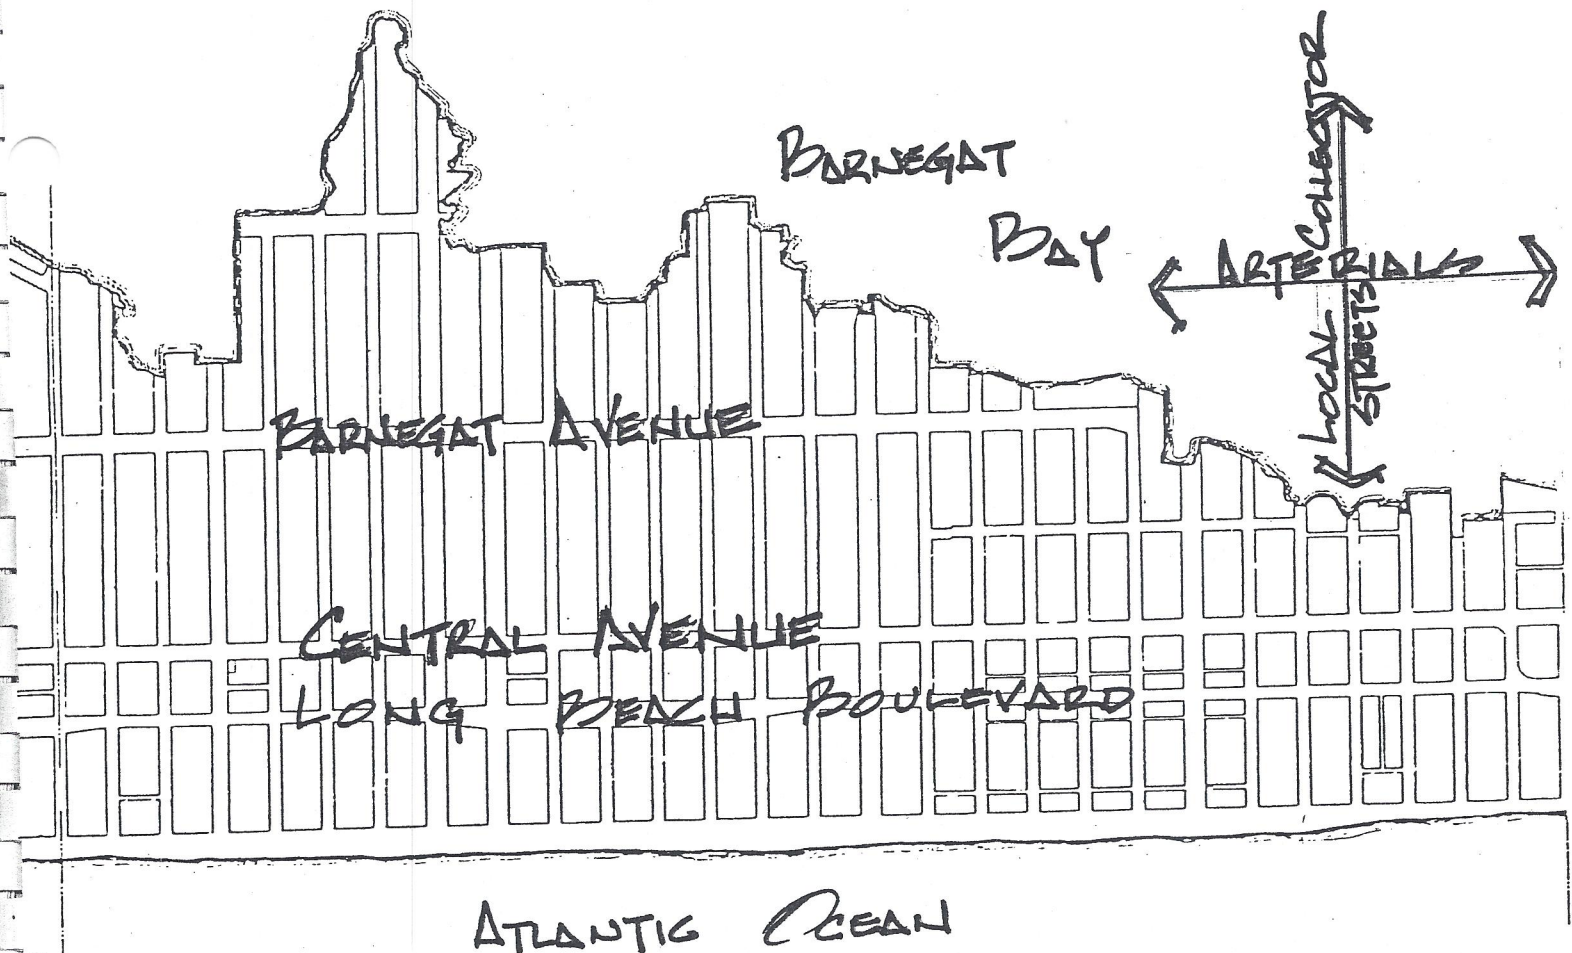 BARNEGAT
BAY
COLLECTOR
ARTERIALS
LOCAL
STREETS
BARNEGAT AVENUE
CENTRAL AVENUE
LONG BEACH BOULEVARD
ATLANTIC OCEAN